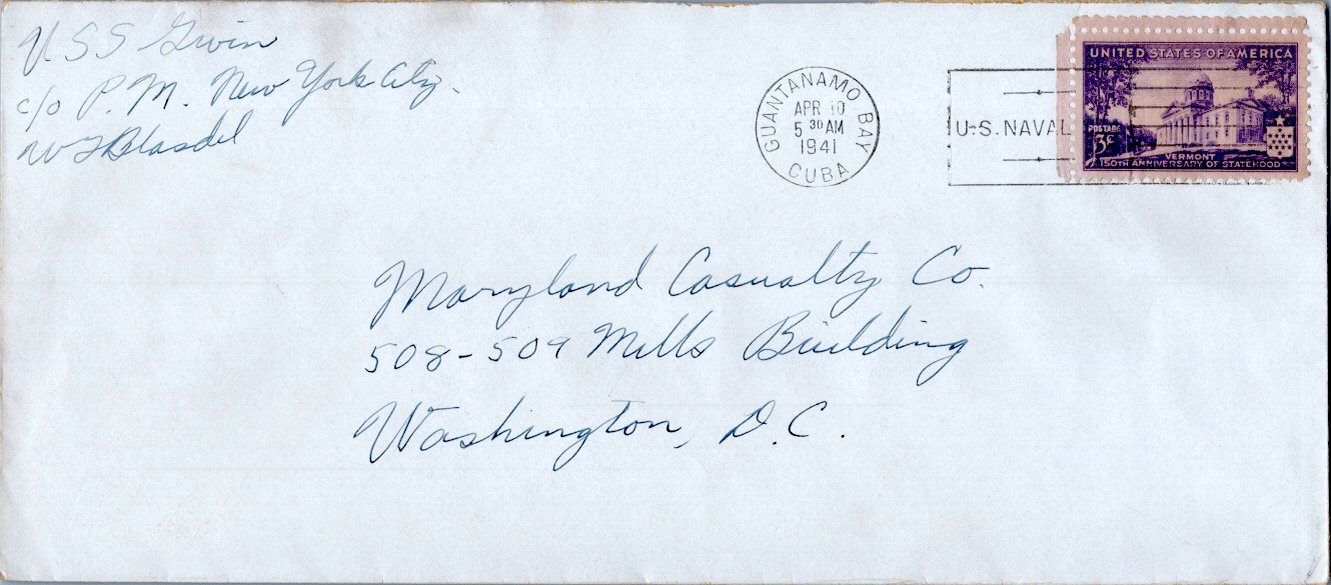 USS Gwin
c/o P. M. New York City.
W F Blasdel
GUANTANAMO BAY
APR 10
5 30 AM
1941
CUBA
U.S. NAVAL
UNITED STATES OF AMERICA
POSTAGE
3¢
VERMONT
150TH ANNIVERSARY OF STATEHOOD
Maryland Casualty Co.
508-509 Mills Building
Washington, D.C.